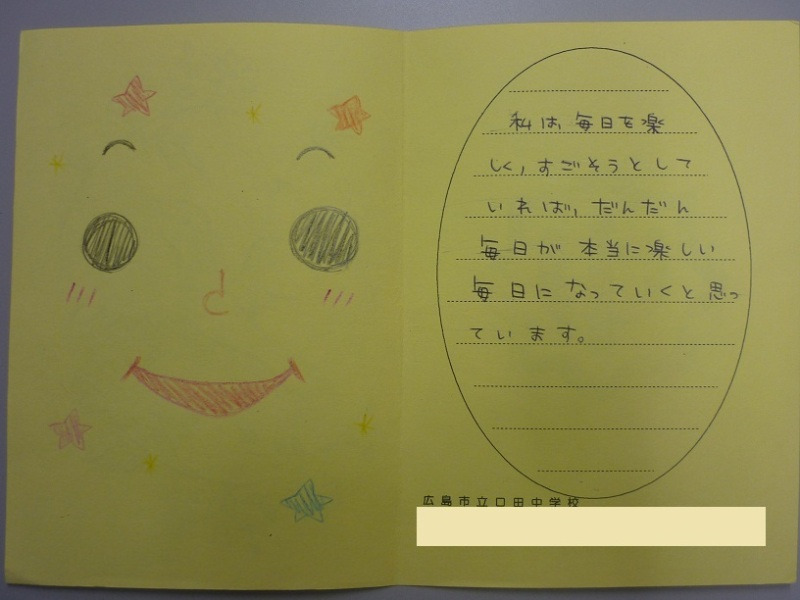 私は毎日を楽
しく,すごそうとして
いれば,だんだん
毎日が本当に楽しい
毎日になっていくと思っ
ています。
広島市立口田中学校